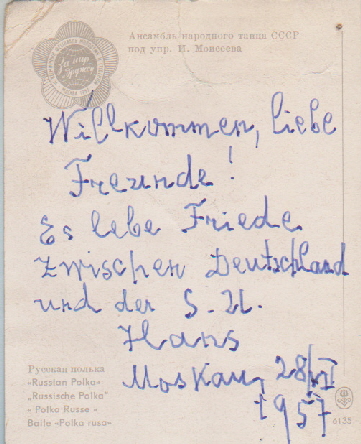 Ансамбль народного танца СССР
под упр. И. Моисеева
За мир
и дружбу
Willkommen, liebe
Freunde!
Es lebe Friede
zwischen Deutschland
und der S.U.
Hans
Moskau, 28/VI
1957
Русская полька
«Russian Polka»
„Russische Polka"
«Polka Russe»
Baile «Polka rusa»
6135